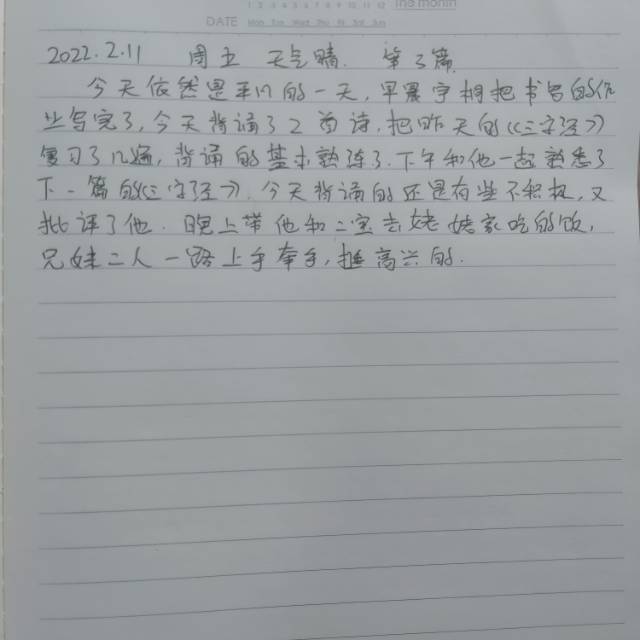 1 2 3 4 5 6 7 8 9 10 11 12 The month
DATE Mon Tue Wed Thu Fri Sat Sun
2022.2.11 周五 天气晴. 第3篇.
今天依然是平凡的一天,早晨宇桐把书写的作
业写完了,今天背诵了2首诗,把昨天的《三字经》
复习了几遍,背诵的基本熟练了.下午和他一起熟悉了
下一篇的《三字经》.今天背诵的还是有些不积极,又
批评了他.晚上带他和二宝去姥姥家吃的饭,
兄妹二人一路上手牵手,挺高兴的.